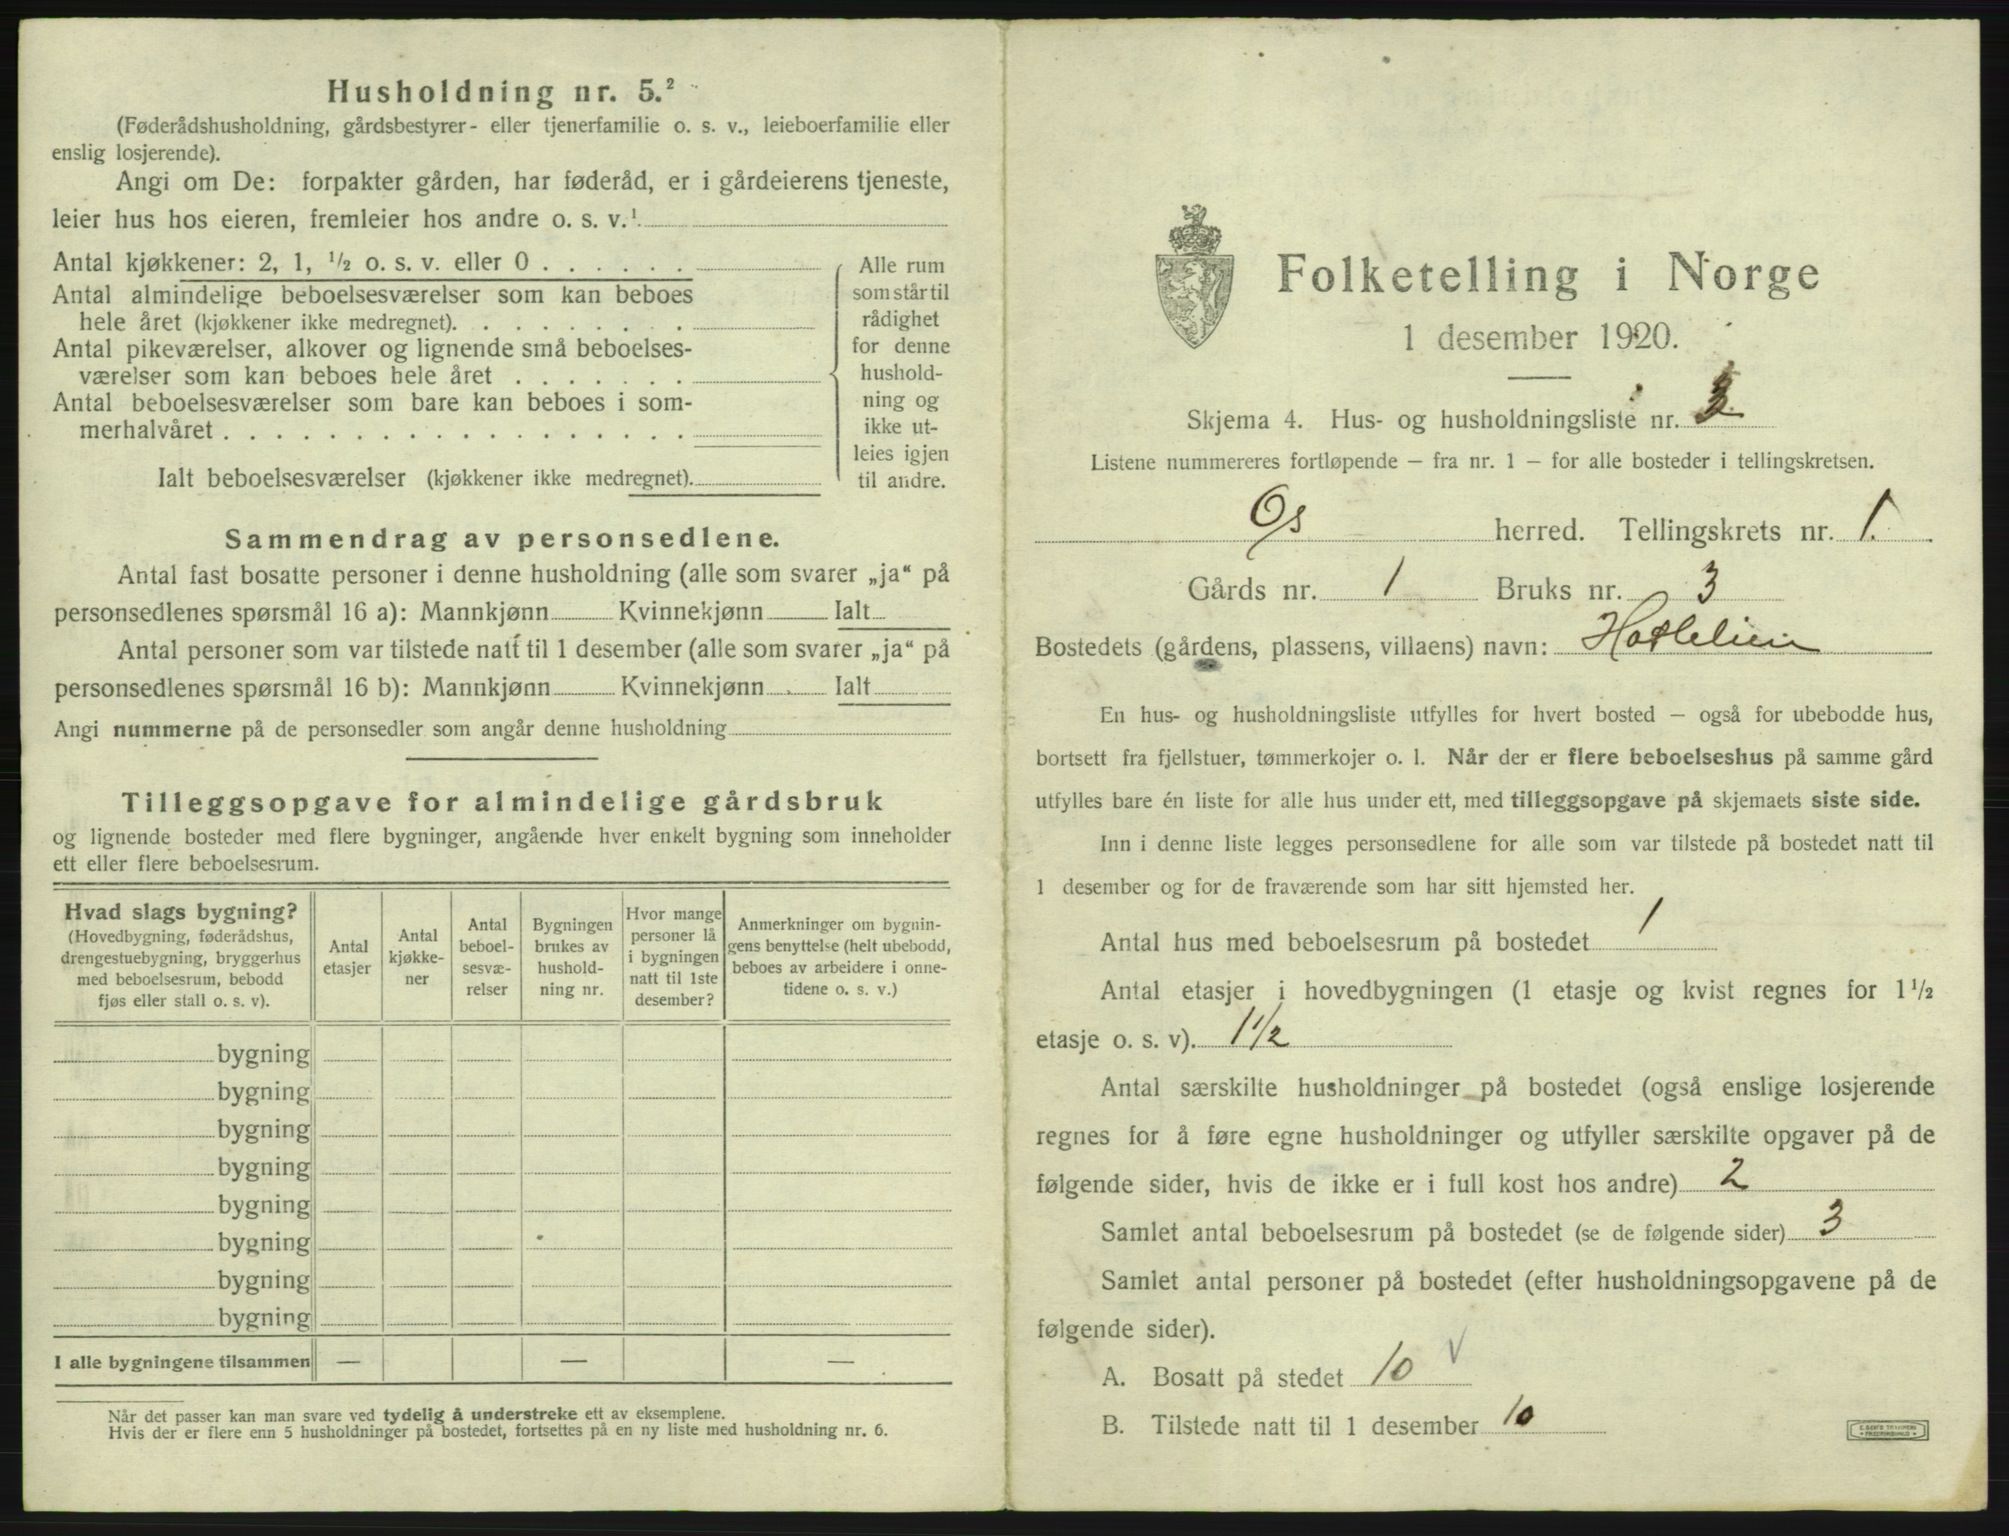 Husholdning nr. 5.²
(Føderådshusholdning, gårdsbestyrer- eller tjenerfamilie o. s. v., leieboerfamilie eller
enslig losjerende).
Angi om De: forpakter gården, har føderåd, er i gårdeierens tjeneste,
leier hus hos eieren, fremleier hos andre o. s. v.¹
Antal kjøkkener: 2, 1, ½ o. s. v. eller 0
Antal almindelige beboelsesværelser som kan beboes
hele året (kjøkkener ikke medregnet).
Antal pikeværelser, alkover og lignende små beboelses-
værelser som kan beboes hele året
Antal beboelsesværelser som bare kan beboes i som-
merhalvåret
Ialt beboelsesværelser (kjøkkener ikke medregnet).
Alle rum
som står til
rådighet
for denne
hushold-
ning og
ikke ut-
leies igjen
til andre.
Sammendrag av personsedlene.
Antal fast bosatte personer i denne husholdning (alle som svarer „ja“ på
personsedlenes spørsmål 16 a): Mannkjønn Kvinnekjønn Ialt
Antal personer som var tilstede natt til 1 desember (alle som svarer „ja“ på
personsedlenes spørsmål 16 b): Mannkjønn Kvinnekjønn Ialt
Angi nummerne på de personsedler som angår denne husholdning
Tilleggsopgave for almindelige gårdsbruk
og lignende bosteder med flere bygninger, angående hver enkelt bygning som inneholder
ett eller flere beboelsesrum.
Hvad slags bygning?
(Hovedbygning, føderådshus,
drengestuebygning, bryggerhus
med beboelsesrum, bebodd
fjøs eller stall o. s. v).
Antal
etasjer
Antal
kjøkke-
ner
Antal
beboel-
sesvæ-
relser
Bygningen
brukes av
hushold-
ning nr.
Hvor mange
personer lå
i bygningen
natt til 1ste
desember?
Anmerkninger om bygnin-
gens benyttelse (helt ubebodd,
beboes av arbeidere i onne-
tidene o. s. v.)
bygning
bygning
bygning
bygning
bygning
bygning
bygning
bygning
I alle bygningene tilsammen — — —
Når det passer kan man svare ved tydelig å understreke ett av eksemplene.
Hvis der er flere enn 5 husholdninger på bostedet, fortsettes på en ny liste med husholdning nr. 6.
Folketelling i Norge
1 desember 1920.
Skjema 4. Hus- og husholdningsliste nr. 3
Listene nummereres fortløpende — fra nr. 1 — for alle bosteder i tellingskretsen.
Os herred. Tellingskrets nr. 1.
Gårds nr. 1 Bruks nr. 3
Bostedets (gårdens, plassens, villaens) navn:
En hus- og husholdningsliste utfylles for hvert bosted — også for ubebodde hus,
bortsett fra fjellstuer, tømmerkojer o. l. Når der er flere beboelseshus på samme gård
utfylles bare én liste for alle hus under ett, med tilleggsopgave på skjemaets siste side.
Inn i denne liste legges personsedlene for alle som var tilstede på bostedet natt til
1 desember og for de fraværende som har sitt hjemsted her.
Antal hus med beboelsesrum på bostedet 1
Antal etasjer i hovedbygningen (1 etasje og kvist regnes for 1½
etasje o. s. v). 1½
Antal særskilte husholdninger på bostedet (også enslige losjerende
regnes for å føre egne husholdninger og utfyller særskilte opgaver på de
følgende sider, hvis de ikke er i full kost hos andre) 2
Samlet antal beboelsesrum på bostedet (se de følgende sider) 3
Samlet antal personer på bostedet (efter husholdningsopgavene på de
følgende sider).
A. Bosatt på stedet 10
B. Tilstede natt til 1 desember 10